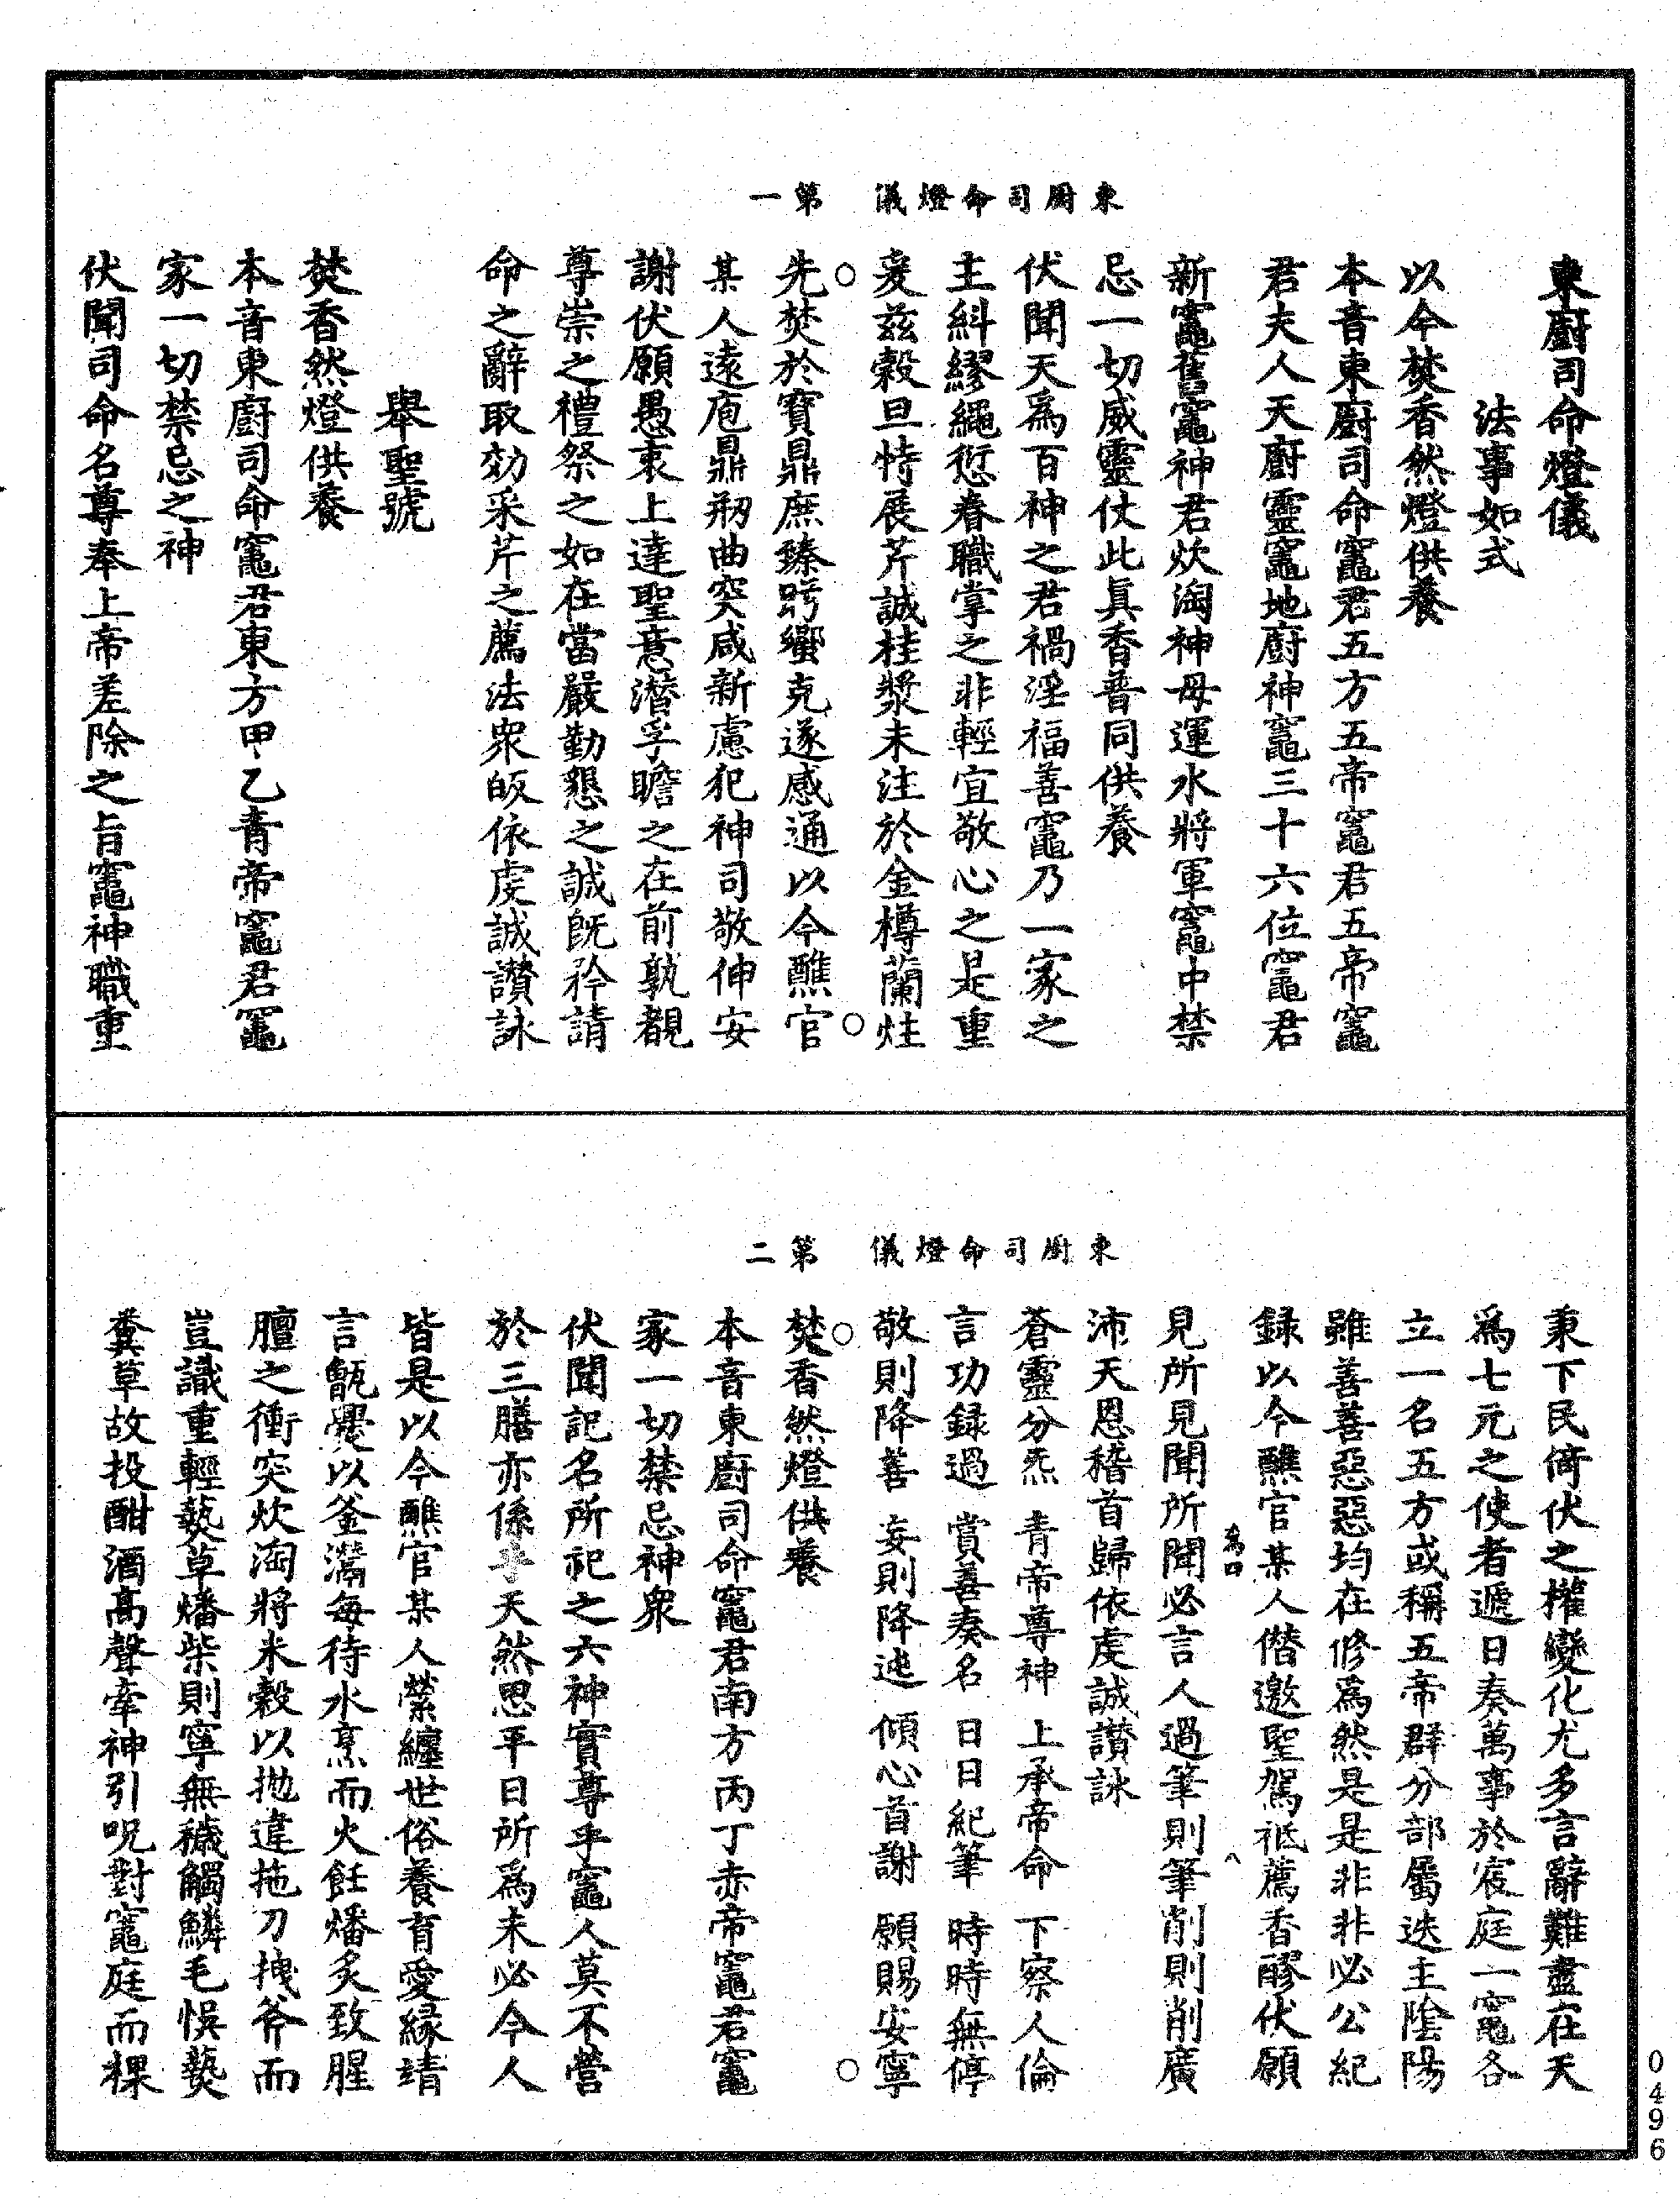 東廚司命燈儀
法事如式
以今焚香然燈供養
本音東廚司命竈君五方五帝竈君五帝竈
君夫人天廚靈竈地廚神竈三十六位竈君
新竈舊竈神君炊淘神母運水將軍竈中禁
忌一切威靈仗此真香普同供養
伏聞天為百神之君禍淫福善竈乃一家之
主糾繆繩愆眷職掌之非輕宜敬心之是重
爰茲穀旦特展芹誠桂漿未注於金樽蘭炷
東廚司命燈儀 第一
先焚於寶鼎庶臻肸蠁克遂感通以今醮官
某人遠庖鼎刱曲突咸新慮犯神司敬伸安
謝伏願愚衷上達聖意潛孚瞻之在前孰覩
尊崇之禮祭之如在當嚴勤懇之誠既矜請
命之辭取効采芹之薦法眾皈依虔誠讚詠
舉聖號
焚香然燈供養
本音東廚司命竈君東方甲乙青帝竈君竈
家一切禁忌之神
伏聞司命名尊奉上帝差除之旨竈神職重
秉下民倚伏之權變化尤多言辭難盡在天
為七元之使者遞日奏萬事於宸庭一竈各
立一名五方或稱五帝群分部屬迭主陰陽
雖善善惡惡均在修為然是是非非必公紀
錄以今醮官某人僭邀聖駕祗薦香醪伏願
見所見聞所聞必言人過筆則筆削則削廣
沛天恩稽首歸依虔誠讚詠
蒼靈分炁 青帝尊神 上承帝命 下察人倫
言功錄過 賞善奏名 日日紀筆 時時無停
敬則降善 妄則降迍 傾心首謝 願賜安寧
東廚司命燈儀 第二
焚香然燈供養
本音東廚司命竈君南方丙丁赤帝竈君竈
家一切禁忌神眾
伏聞記名所祀之六神實尊乎竈人莫不營
於三膳亦係乎天然思平日所為未必今人
皆是以今醮官某人縈纏世俗養育愛緣請
言甑以釜瀰每待水烹而火飪燔炙致腥
膻之衝突炊淘將米穀以拋違拖刀拽斧而
豈識重輕爇草燔柴則寧無穢觸鱗毛悞爇
糞草故投酣酒高聲牽神引呪對竈庭而裸
0496